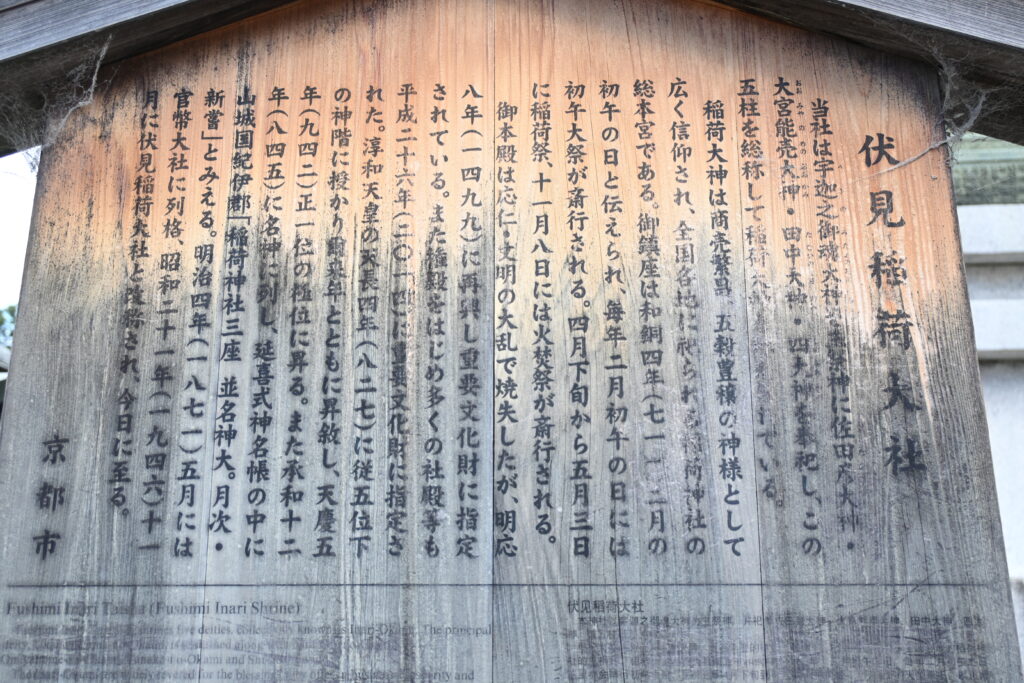 伏見稲荷大社
当社は宇迦之御魂大神を主祭神に佐田彦大神・
大宮能売大神・田中大神・四大神を奉祀し、この
五柱を総称して稲荷大神 ている。
稲荷大神は商売繁昌、五穀豊穣の神様として
広く信仰され、全国各地に祀られる稲荷神社の
総本宮である。御鎮座は和銅四年(七一一)二月の
初午の日と伝えられ、毎年二月初午の日には
初午大祭が斎行される。四月下旬から五月三日
に稲荷祭、十一月八日には火焚祭が斎行される。
御本殿は応仁・文明の大乱で焼失したが、明応
八年(一四九九)に再興し重要文化財に指定
されている。また権殿をはじめ多くの社殿等も
平成二十六年(二〇一四)に重要文化財に指定さ
れた。淳和天皇の天長四年(八二七)に従五位下
の神階に授かり爾来年とともに昇叙し、天慶五
年(九四二)正一位の極位に昇る。また承和十二
年(八四五)に名神に列し、延喜式神名帳の中に
山城国紀伊郡「稲荷神社三座 並名神大。月次・
新嘗」とみえる。明治四年(一八七一)五月には
官幣大社に列格、昭和二十一年(一九四六)十一
月に伏見稲荷大社と改称され、今日に至る。
京都市
Fushimi Inari Taisha (Fushimi Inari Shrine)
five deities, collectively known as Inari-Okami. The principal
and
widely revered for the and
伏见稻荷大社